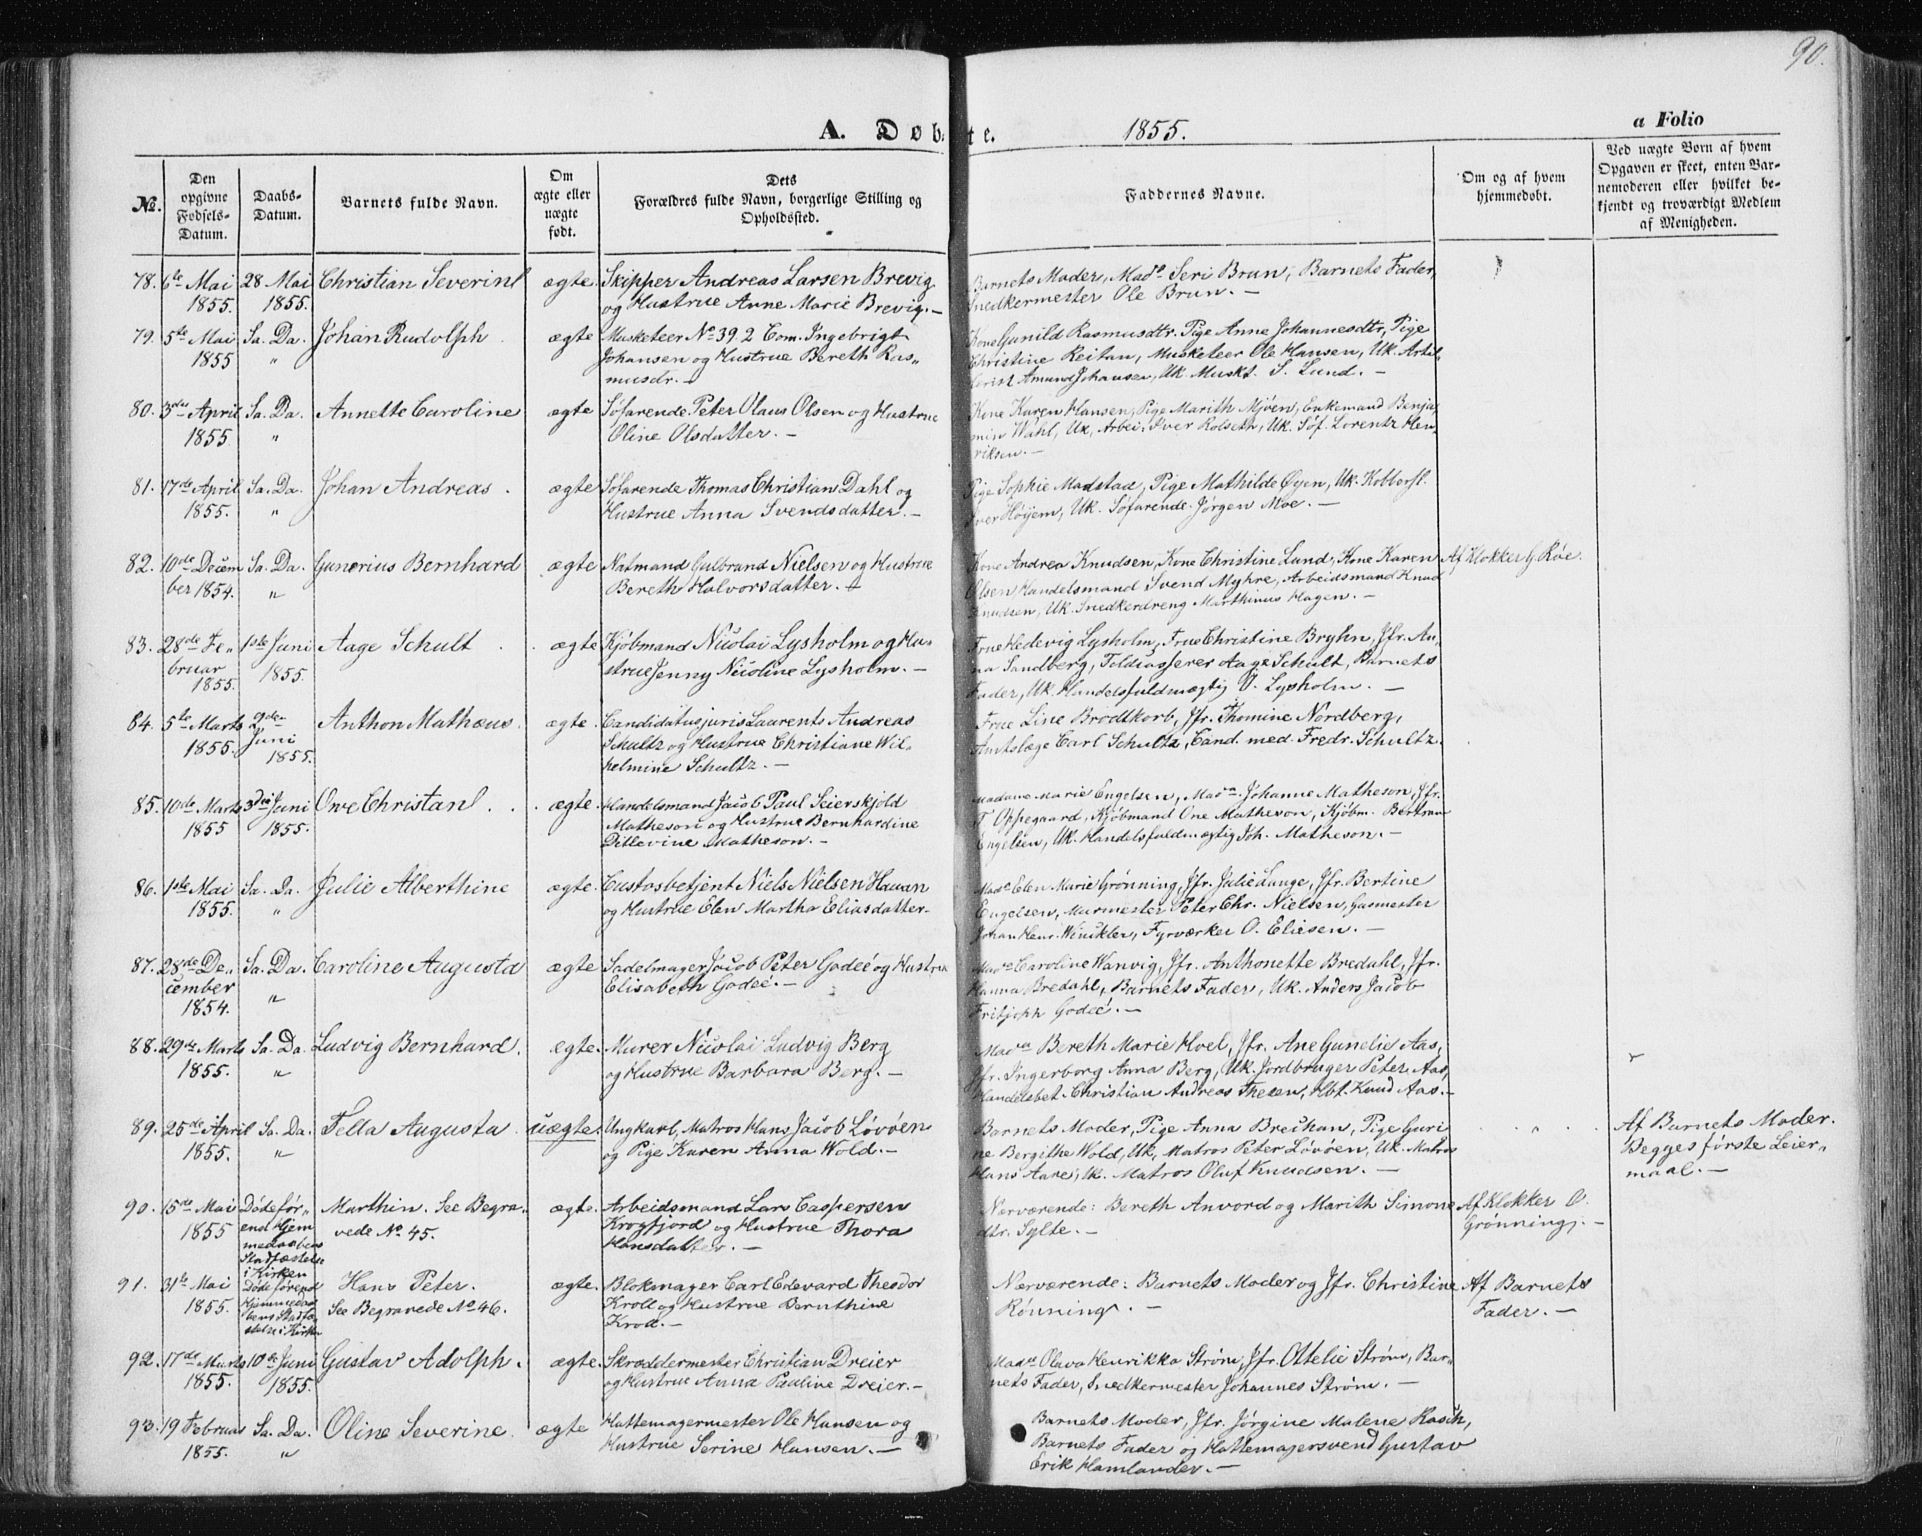 90.
A. Døbte. 1855. a Folio
No.
Den opgivne Fødsels-Datum.
Daabs-Datum.
Barnets fulde Navn.
Om ægte eller uægte født.
Dets Forældres fulde Navn, borgerlige Stilling og Opholdssted.
Faddernes Navne.
Om og af hvem hjemmedøbt.
Ved uægte Børn af hvem Opgaven er skeet, enten Barnemoderen eller hvilket bekjendt og troværdigt Medlem af Menigheden.
78. 6te Mai 1855. 28 Mai 1855. Christian Severin ægte. Skipper Andreas Larsen Brevig
og Hustrue Anne Marie Brevig.–
Barnets Moder, Made Seri Brun, Barnets Fader,
Snedkermester Ole Brun.–
79. 5te Mai 1855 Sa. Da. Johan Rudolph ægte Musketeer No 39. 2 Com. Ingebrigt
Johansen og Hustrue Bereth Ras„
musdr.–
Kone Gunild Rasmusdtr. Pige Anne Johannesdtr, Pige
Christine Reitan, Musketeer Ole Hansen, Uk. Artil-
lerist Amund Johansen, Uk. Muskt. S. Lund.–
80. 3die April 1855 Sa. Da. Annette Caroline ægte Søfarende Peter Olaus Olsen og Hustrue
Oline Olsdatter.–
Kone Karen Hansen, Pige Marith Mjøen, Enkemand Benja-
min Wahl, Uk. Arbei. Iver Rolseth, Uk. Søf. Lorentz Hen-
riksen.–
81. 17de April 1855. Sa. Da. Johan Andreas. ægte Søfarende Thomas Christian Dahl og
Hustrue Anna Svendsdatter.–
Pige Sophie Madstad, Pige Mathilde Øyen, Uk.
Iver Høyem, Uk. Søfarende Jørgen Moe.–
82. 10de December 1854. Sa. Da. Gunerius Bernhard ægte Natmand Gulbrand Nielsen og Hustrue
Bereth Halvorsdatter.
Kone Andrea Knudsen, Kone Christine Lund, Kone Karen
Olsen Handelsmand Svend Myhre, Arbeidsmand Knud
Knudsen, Uk. Snedkerdreng Marthinus Hagen.–
Af Klokker G. Røe.
83. 28de Fe„bruar 1855. 1ste Juni 1855. Aage Schult. ægte Kjøbmand Nicolai Lysholm og Hu-
strue Jenny Nicoline Lysholm.–
Frue Hedevig Lysholm, Frue Christine Bryhn, Jfr. An-
na Sandberg, Toldkasserer Aage Schult, Barnets
Fader, Uk. Handelsfuldmægtig O. Lysholm.–
84. 5te Marts 1855. 2den Juni 1855. Anthon Mathæus. ægte. Candidatus juris Laurents Andreas
Schultz og Hustrue Christiane Wil-
helmine Schultz.–
Frue Line Brodtkorb, Jfr. Thomine Nordberg,
Amtslæge Carl Schultz, Cand. med. Fredr. Schultz.
85. 10de Marts 1855 3die Juni 1855. Owe Christian. ægte. Handelsmand Jacob Paul Seierskjold
Matheson og Hustrue Bernhardine
Ditlevine Matheson.–
Madame Marie Engelsen, Made Johanne Matheson, Jfr.
T. Oppegaard, Kjøbmand One Matheson, Kjøbm. Bertram
Engelsen, Uk. Handelsfuldmægtig Joh. Matheson.–
86. 1ste Mai 1855. Sa. Da. Julie Alberthine ægte. Custosbetjent Niels Nielsen Havan
og Hustrue Elen Martha Eliasdatter.
Made Elen Marie Grønning, Jfr. Julie Lange, Jfr. Bertine
Engelsen, Murmester Peter Chr. Nielsen, Gasmester
Johan Henr. Winkler, Fyrværker O. Eliesen.–
87. 28de De„cember 1854. Sa. Da. Caroline Augusta ægte Sadelmager Jacob Peter Godeé og Hustrue
Elisabeth Godeé.–
Made Caroline Wanvig, Jfr. Anthonette Bredahl, Jfr.
Hanna Bredahl, Barnets Fader, Uk. Anders Jacob
Fritjoph Godeé.–
88. 29de Marts 1855. Sa. Da. Ludvig Bernhard. ægte. Murer Nicolai Ludvig Berg
og Hustrue Barbara Berg.–
Made Bereth Marie Hoel, Jfr. Ane Gunelie Aas,
Jfr. Ingerborg Anna Berg, Uk. Jordbruger Peter Aas,
Handelsbet. Christian Andreas Thesen, Hbt. Knud Aas.–
89. 25de April 1855. Sa. Da. Fella Augusta. uægte. Ungkarl, Matros Hans Jacob Løvøen
og Pige Karen Anna Wold.–
Barnets Moder, Pige Anna Breihan, Pige Guri
ne Bergithe Wold, Uk. Matros Peter Løvøen, Uk. Matros
Hans Aare, Uk. Matros Oluf Knudsen.–
Af Barnets Moder.
Begges første Leier„
maal.–
90. 15de Mai 1855 Dødefør„
end Hjem
medaabens
Stadfæstelse
i Kirken
Marthin. See Begra„
vede No. 45.
ægte. Arbeidsmand Lars Caspersen
Krogfjord og Hustrue Thora
Hansdatter.–
Nærværende: Bereth Anvord og Marith Simons
dtr. Sylte.–
Af Klokker O.
Grønning.–
91. 31te Mai 1855. Døde førend
Hjemmedaa
bens Stadfæ
stelse i Kirken
Hans Peter.
See Begravede No 46.
ægte. Blokmager Carl Edevard Theodor
Kroll og Hustrue Bernthine
Kroll.–
Nærværende: Barnets Moder og Jfr. Christine
Rønning.–
Af Barnets
Fader.–
92. 17de Marts 1855. 10de Juni 1855. Gustav Adolph. ægte. Skræddermester Christian Dreier
og Hustrue Anna Pauline Dreier.–
Made Olava Henrikka Strøm, Jfr. Ottelie Strøm, Bar-
nets Fader, Snedkermester Johannes Strøm.–
93. 19 Februar 1855. Sa. Da. Oline Severine. ægte Hattemagermester Ole Hansen og
Hustrue Serine Hansen.–
Barnets Moder, Jfr. Jørgine Malene Rasch,
Barnets Fader og Hattemagersvend Gustav
Erik Hamlander.–